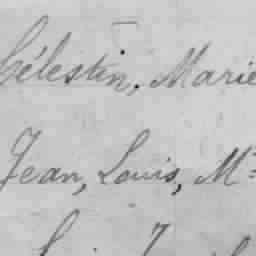 Célestin, Marie
Jean, Louis, M